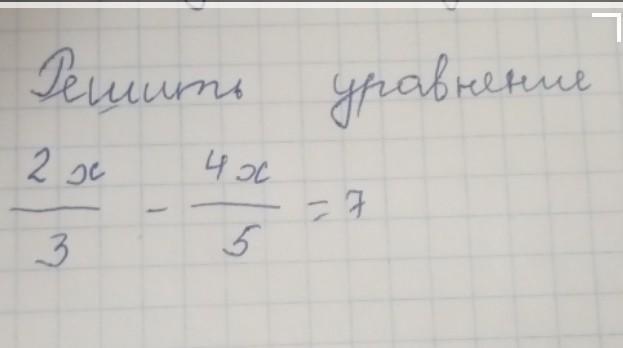 Решить уравнение
2x/3 - 4x/5 = 7